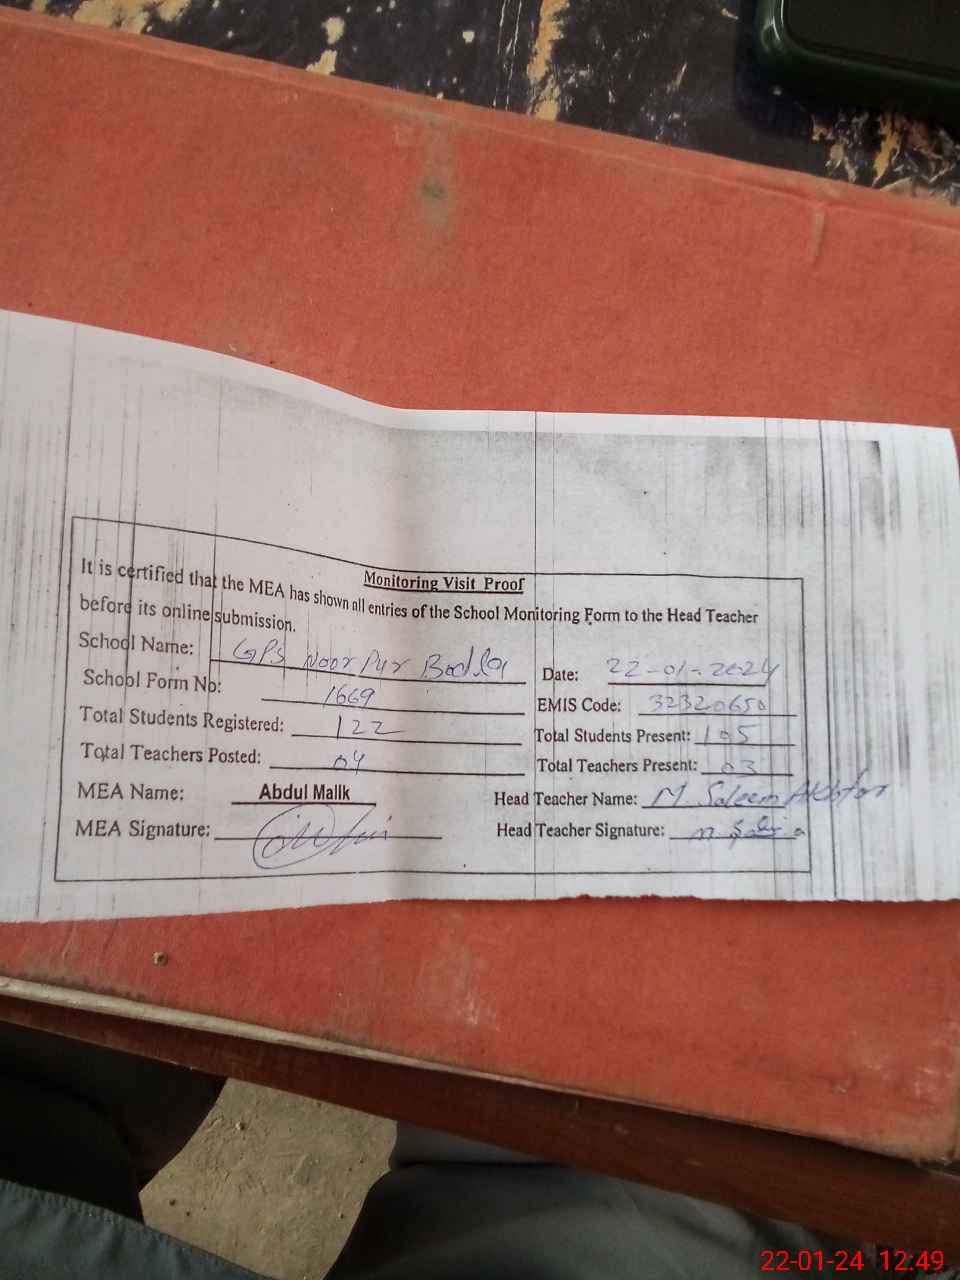 Monitoring Visit Proof
It is certified that the MEA has shown all entries of the School Monitoring Form to the Head Teacher
before its online submission.
School Name: GPS Noor Pur Bodla Date: 22-01-2024
School Form No: 1669 EMIS Code: 32320650
Total Students Registered: 122 Total Students Present: 105
Total Teachers Posted: 04 Total Teachers Present: 03
MEA Name: Abdul Malik Head Teacher Name: M Saleem Akhtar
MEA Signature: Head Teacher Signature:
22-01-24 12:49